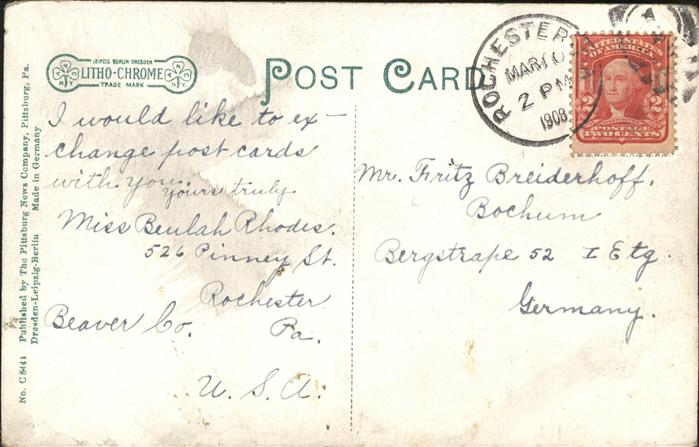 LEIPZIG BERLIN DRESDEN
LITHO-CHROME
TRADE MARK
N.Y.
POST CARD
ROCHESTER
MAR 10
2 PM
1908
UNITED STATES
OF AMERICA
2 2
POSTAGE
TWO CENTS
I would like to ex-
change post cards
with you.
yours truly
Miss Beulah Rhodes.
526 Pinney St.
Rochester
Beaver Co. Pa.
U. S. A.
Mr. Fritz Breiderhoff.
Bochum
Bergstrape 52 I Etg.
Germany.
No. C 8444 Published by The Pittsburg News Company, Pittsburg, Pa.
Dresden-Leipzig-Berlin Made in Germany